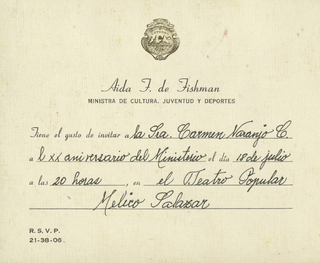 Aida F. de Fishman
MINISTRA DE CULTURA, JUVENTUD Y DEPORTES
Tiene el gusto de invitar a la Sra. Carmen Naranjo C.
a l XX aniversario del Ministerio el día 18 de julio
a las 20 horas, en el Teatro Popular
Melico Salazar
R.S.V.P.
21-38-06.